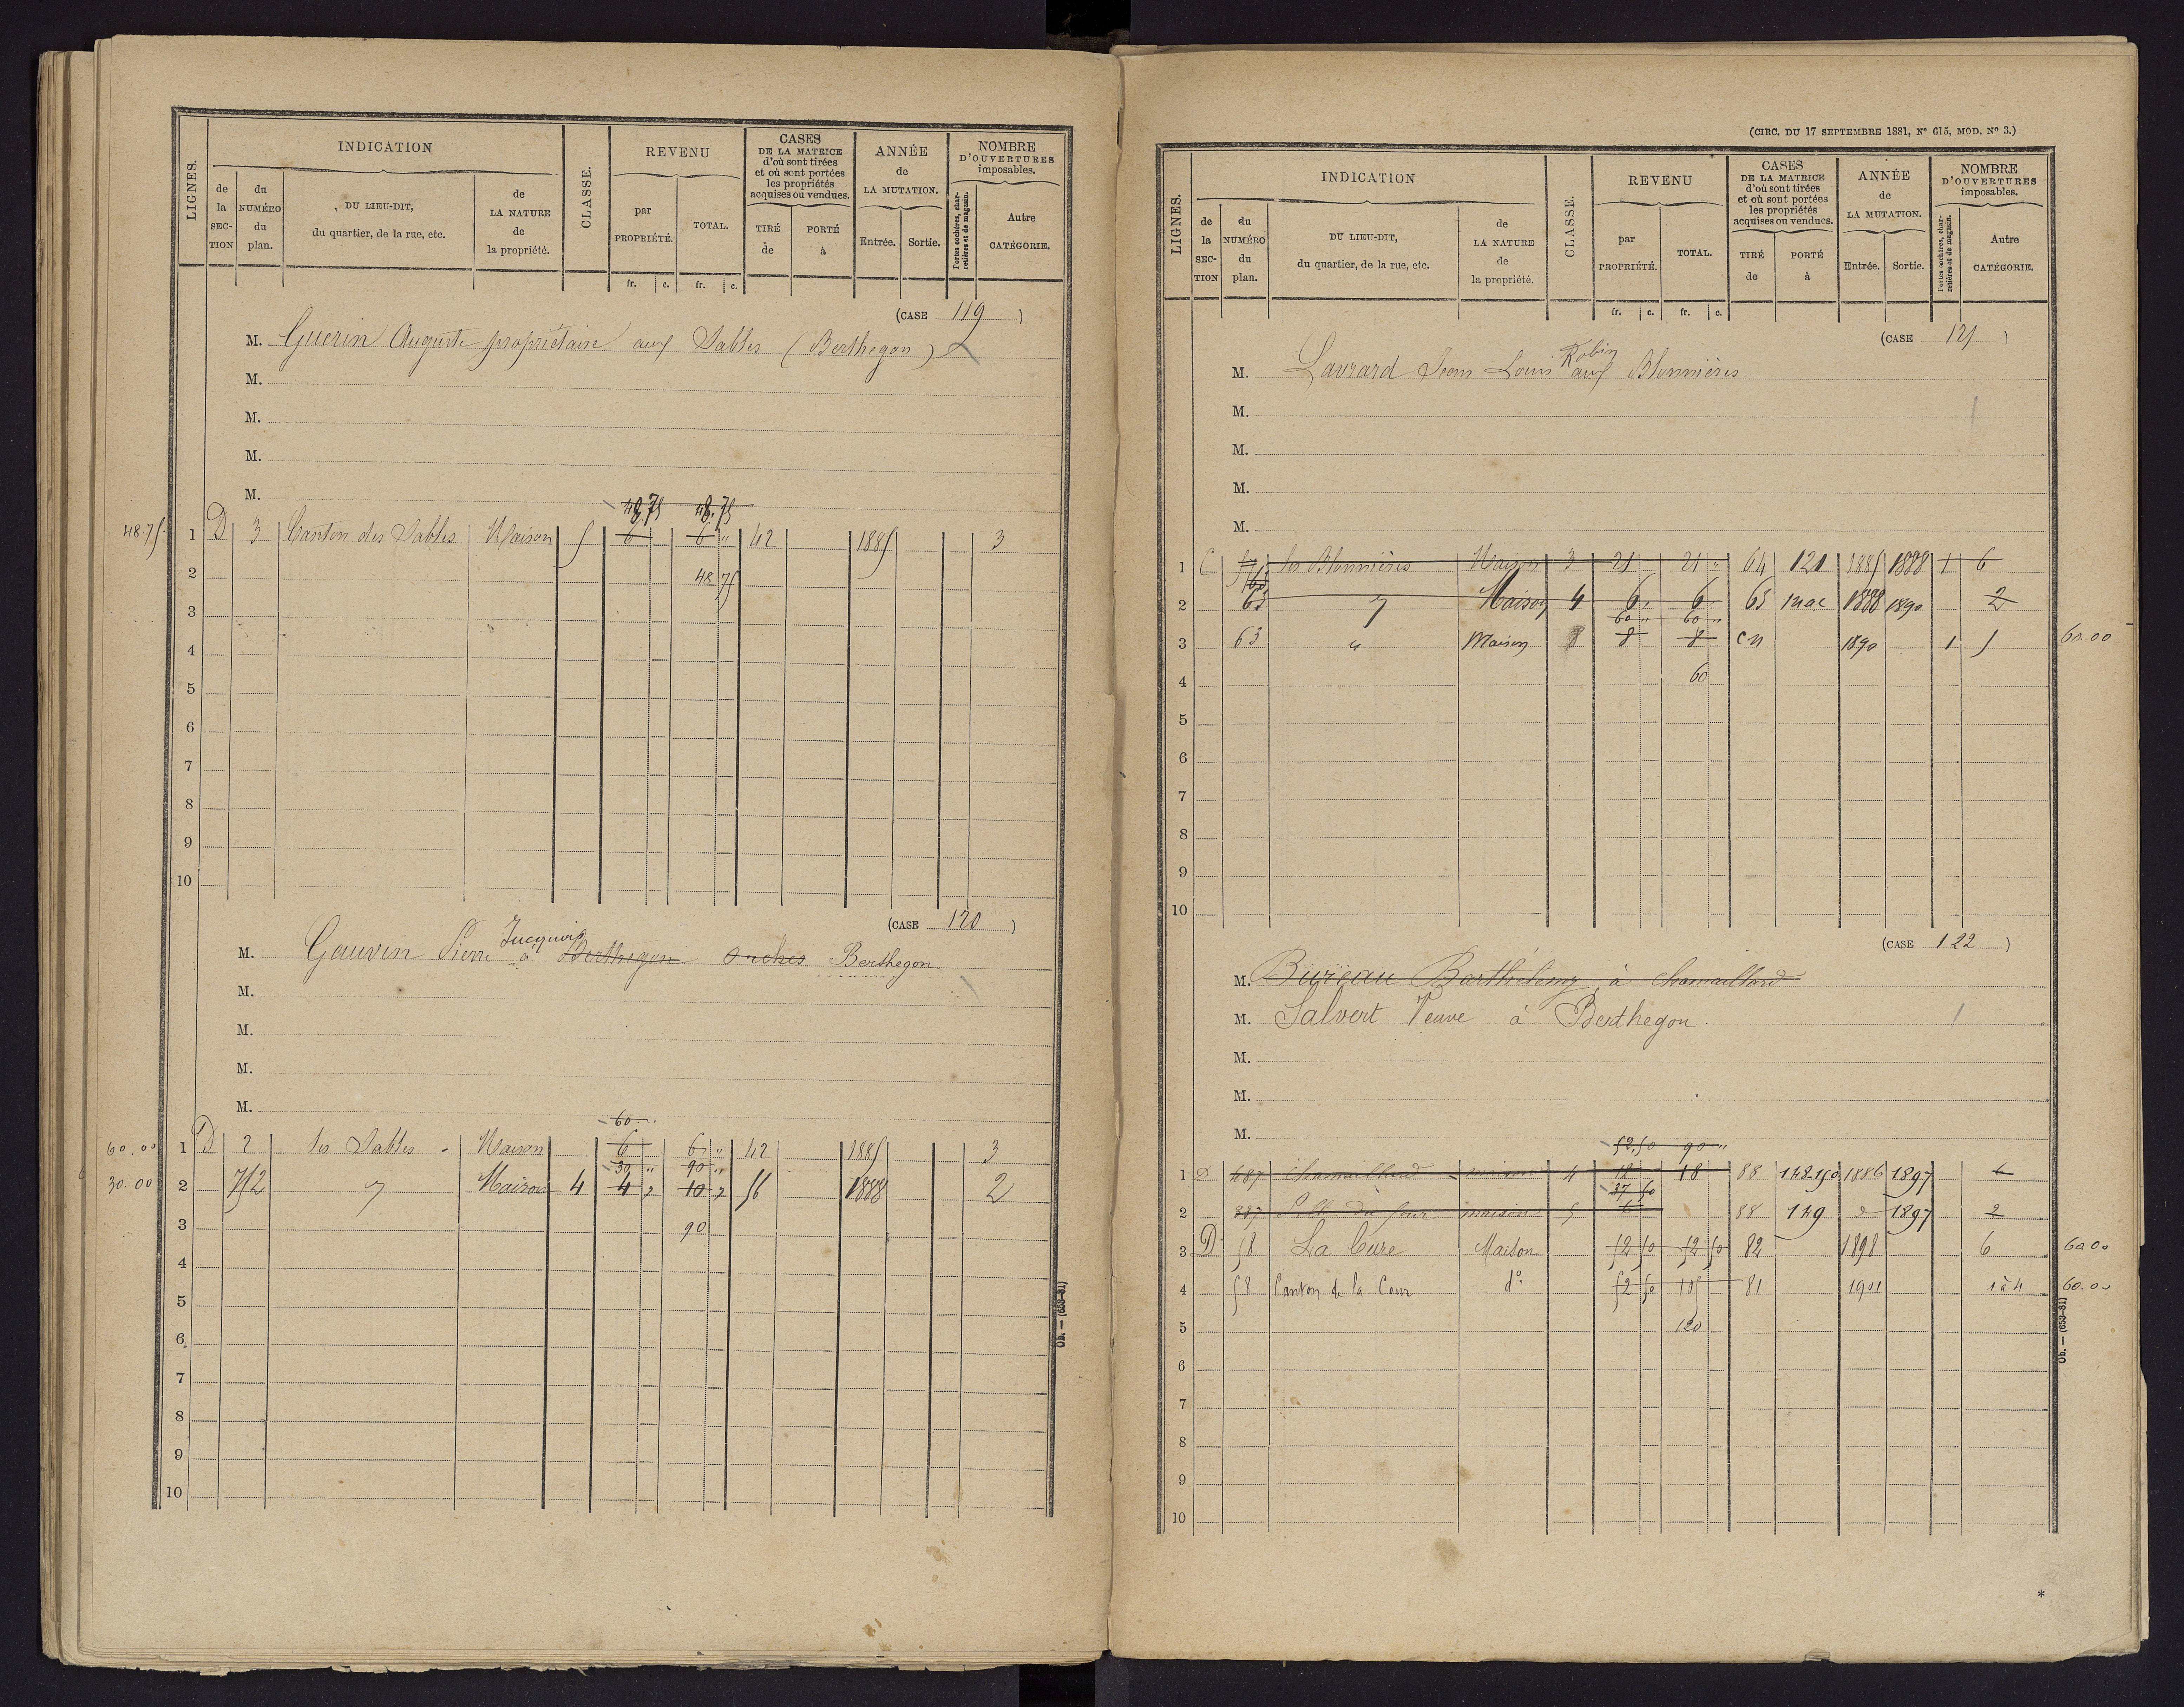 LIGNES. INDICATION CLASSE. REVENU CASES DE LA MATRICE d'où sont tirées et où sont portées les propriétés acquises ou vendues. ANNÉE de LA MUTATION. NOMBRE D'OUVERTURES imposables.
de la SECTION du NUMÉRO du plan. DU LIEU-DIT, du quartier, de la rue, etc. de LA NATURE de la propriété. par PROPRIÉTÉ. TOTAL. TIRÉ de PORTÉ à Entrée. Sortie. Portes cochères, charretières et de magasin. Autre CATÉGORIE.
fr. c. fr. c.
(CASE 119 )
M. Guerin Auguste propriétaire aux Sables (Berthegon)
M.
M.
M.
M.
48,75 48,75
48.75 1 D 3 Canton des Sables Maison 5 6 6 " 42 1885 3
2 48 75
3
4
5
6
7
8
9
10
(CASE 120 )
Jucquois
M. Gauvin Pierre à Berthegon Orches Berthegon
M.
M.
M.
M.
60
60.00 1 D 2 les Sables Maison 6 6 " 42 1885 3
30 " 90 "
30.00 2 752 " Maison 4 4 " 10 " 56 1888 2
3 90
4
5
6
7
8
9
10
Ob. — (653-81)
(CIRC. DU 17 SEPTEMBRE 1881, N° 615, MOD. N° 3.)
LIGNES. INDICATION CLASSE. REVENU CASES DE LA MATRICE d'où sont tirées et où sont portées les propriétés acquises ou vendues. ANNÉE de LA MUTATION. NOMBRE D'OUVERTURES imposables.
de la SECTION du NUMÉRO du plan. DU LIEU-DIT, du quartier, de la rue, etc. de LA NATURE de la propriété. par PROPRIÉTÉ. TOTAL. TIRÉ de PORTÉ à Entrée. Sortie. Portes cochères, charretières et de magasin. Autre CATÉGORIE.
fr. c. fr. c.
(CASE 121 )
Robin
M. Lavrard Jean Louis aux Blonnières
M.
M.
M.
M.
1 C les Blonnières Maison 3 21 21 " 64 121 1885 1888 1 6
2 63 " Maison 4 6 6 65 1888 1890 2
60 " 60 "
3 63 " Maison 8 8 8 cn 1890 1 5 60.00
4 60
5
6
7
8
9
10
(CASE 122 )
M. Bureau Barthélemy à chamaillard
M. Salvert Veuve à Berthegon.
M.
M.
M.
52,50 90 "
1 D 487 chamaillard maison 4 12 18 88 148-150 1886 1897 6
37 50
2 887 du four maison 5 6 88 149 d 1897 2
3 D 58 La Cure Maison 52 50 52 50 82 1898 6 60 00
4 58 Canton de la Cour d° 52 50 105 81 1901 1 à 4 60.00
5 120
6
7
8
9
10
Ob. — (653-81)
*